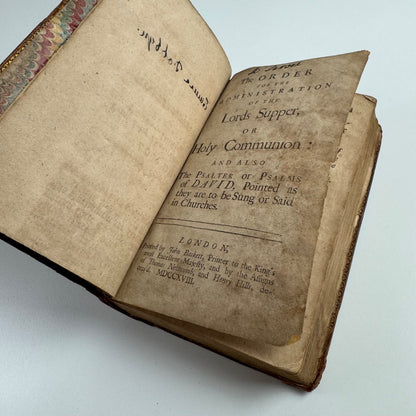 The ORDER
FOR THE
ADMINISTRATION
OF THE
Lords Supper,
OR
Holy Communion:
AND ALSO
The PSALTER or PSALMS
of DAVID, Pointed as
they are to be Sung or Said
in Churches.
LONDON,
Printed by John Baskett, Printer to the King's
most Excellent Majesty, and by the Assigns
of Thomas Newcomb, and Henry Hills, de-
ceas'd. MDCCXVIII.